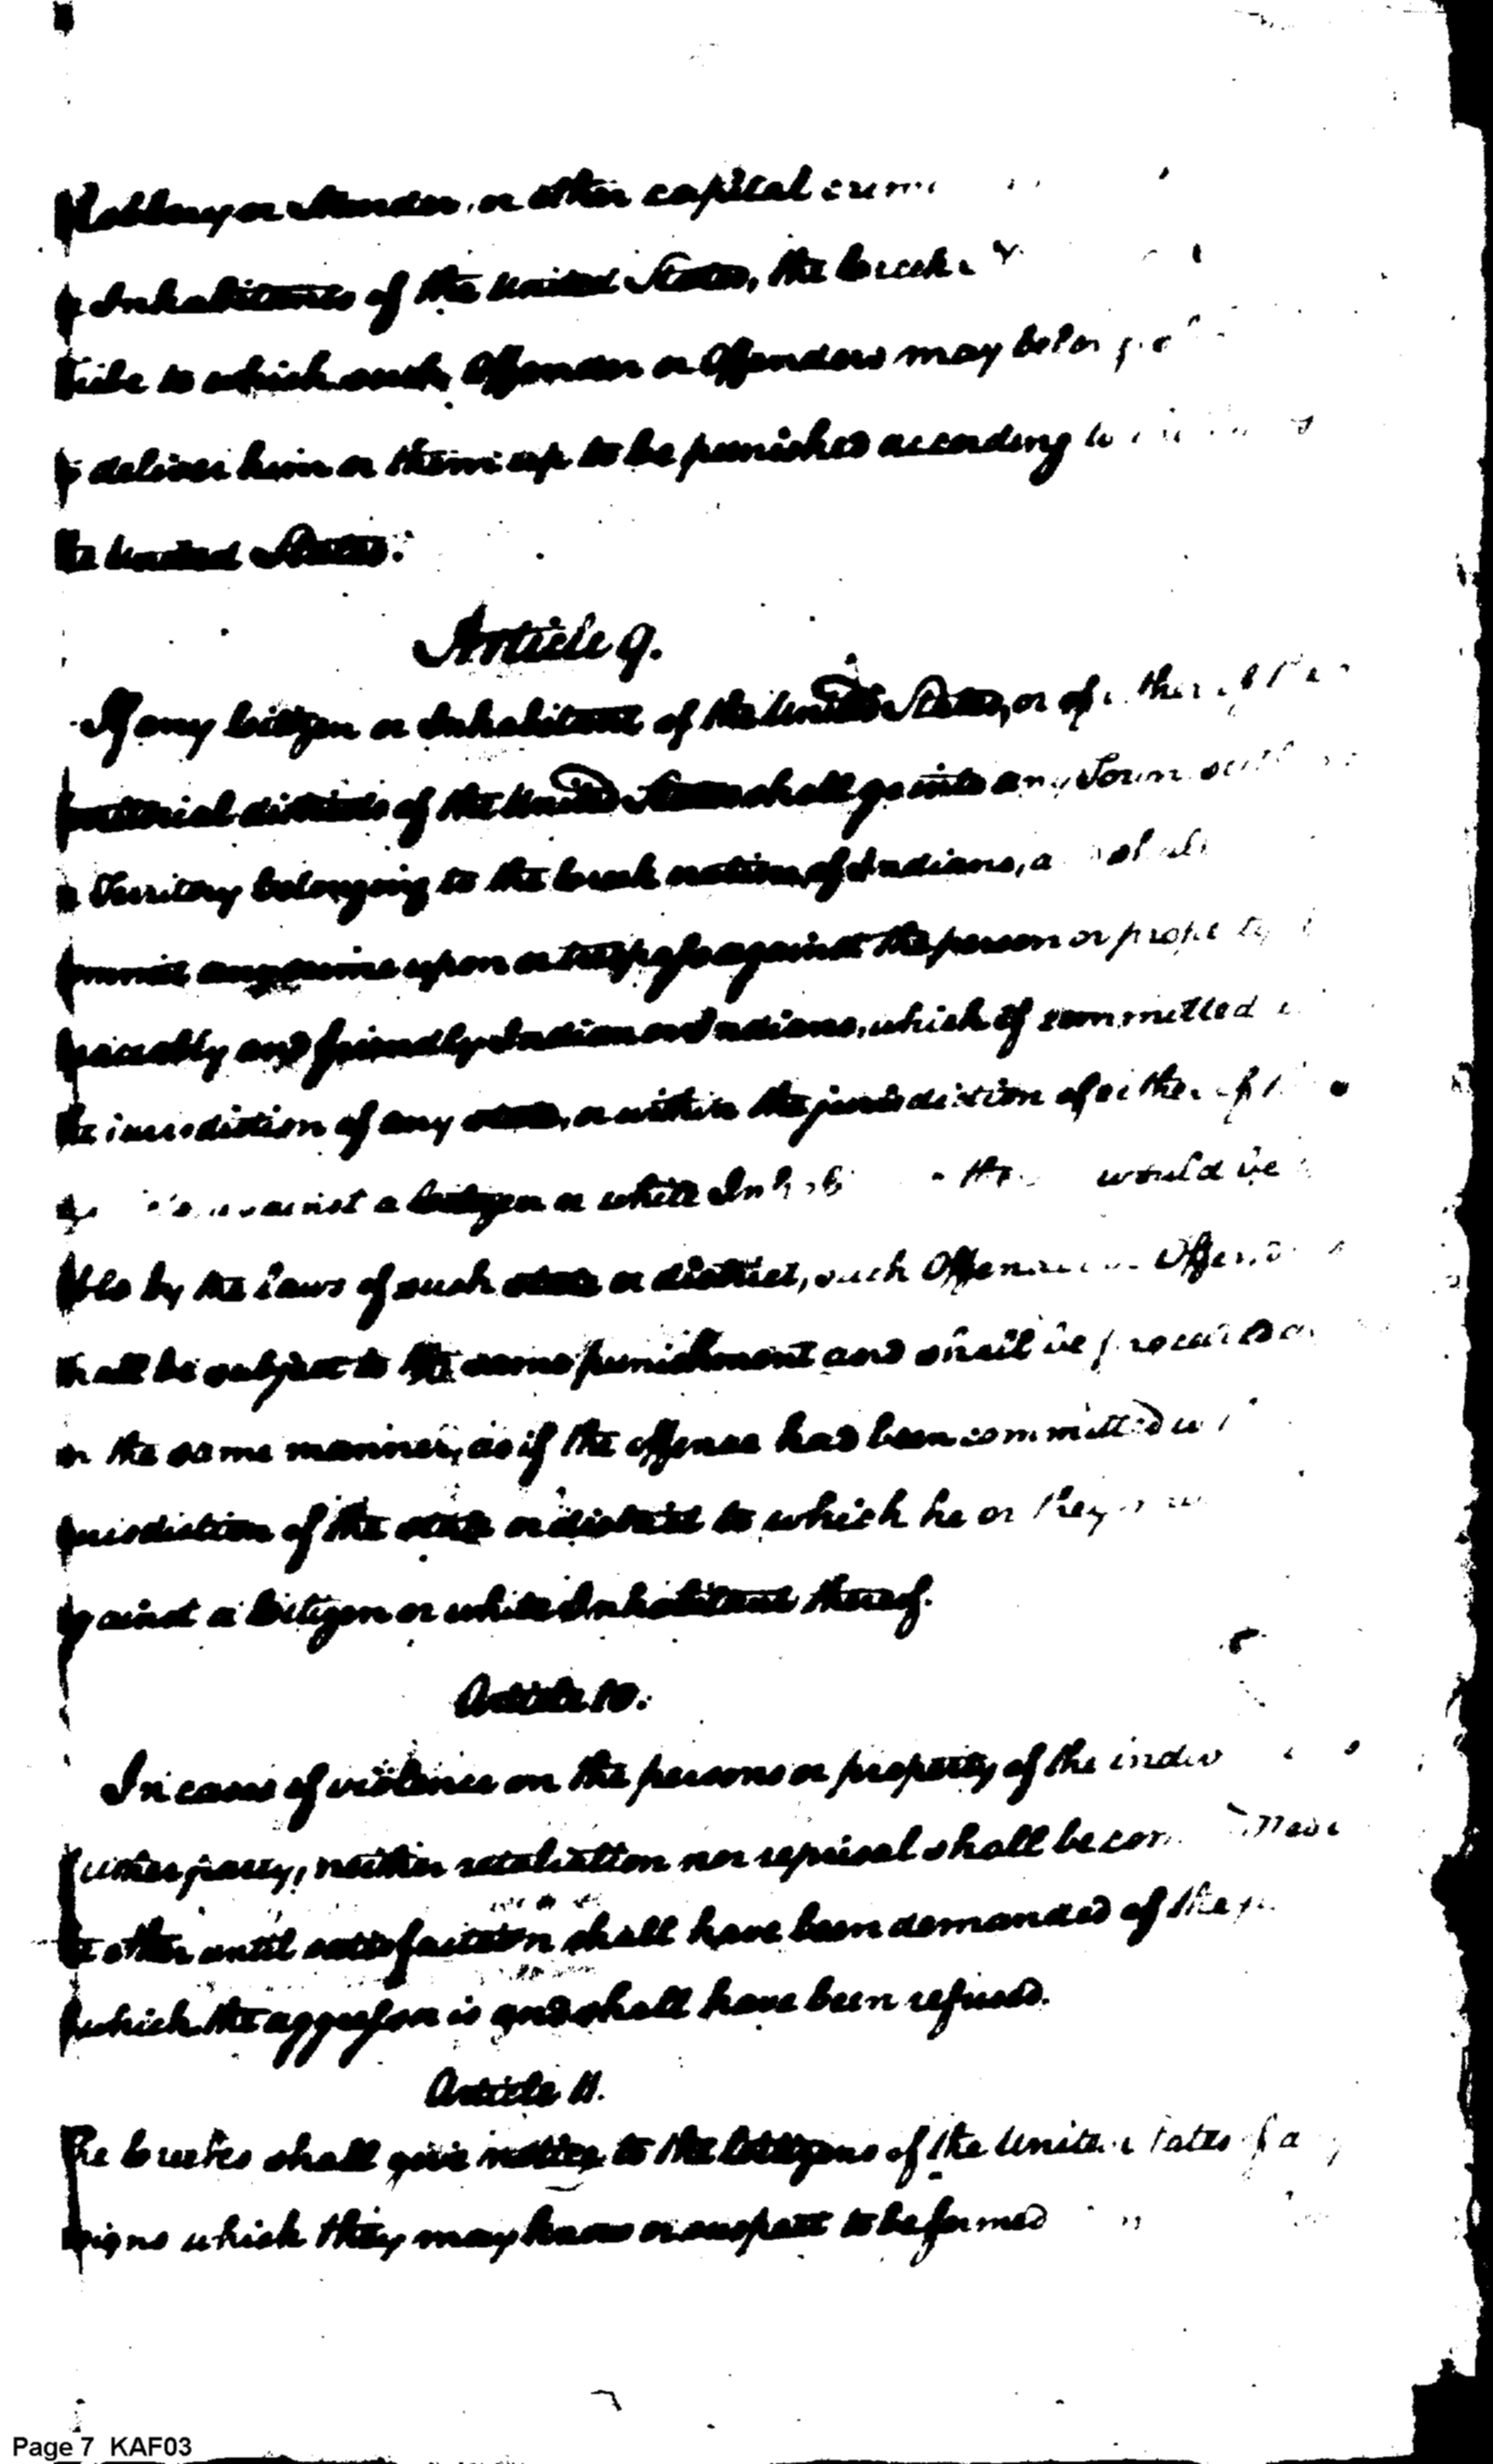 Robbery or Murder, or other capital crime
Inhabitants of the United States, the Creek
Tribe to which such Offender or Offenders may belong
deliver him or them up to be punished according to
the United States.
Article 9.
If any Citizen or Inhabitant of the United States, or of either of the
territorial districts of the United States shall go into any Town
or Territory belonging to the Creek nation of Indians, shall
commit any crime upon or trespass against the person or property
peaceably and friendly Indian or Indians, which if committed
the jurisdiction of any state, or within the jurisdiction of either of
against a Citizen or white would be
by the Laws of such state or district, such Offender
shall be subject to the same punishment and shall be proceeded
in the same manner, as if the offense had been committed
jurisdiction of the state or district to which he or they
against a Citizen or white Inhabitant thereof.
Article 10.
In cases of violence on the persons or property of the
either party, neither retaliation nor reprisal shall be
the other until satisfaction shall have been demanded of the
which the aggressor is and shall have been refused.
Article 11.
The Creeks shall give notice to the Citizens of the United States
which they may know or suspect to be formed
Page 7 KAF03